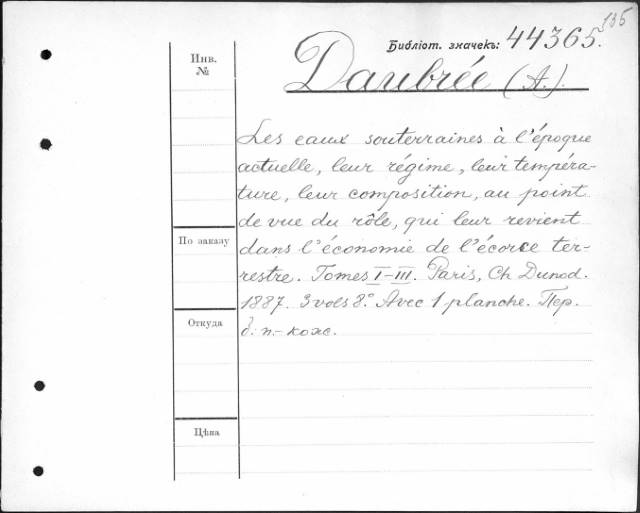 135
Библіот. значекъ: 44365.
Daubrée (A.).
Инв.
№
Les eaux souterraines à l'époque
actuelle, leur régime, leur tempéra-
ture, leur composition, au point
de vue du rôle, qui leur revient
dans l'économie de l'écorce ter-
restre. Tomes I-III. Paris, Ch Dunod.
1887. 3 vols 8º Avec 1 planche. Пер.
д. п.- кож.
По заказу
Откуда
Цѣна